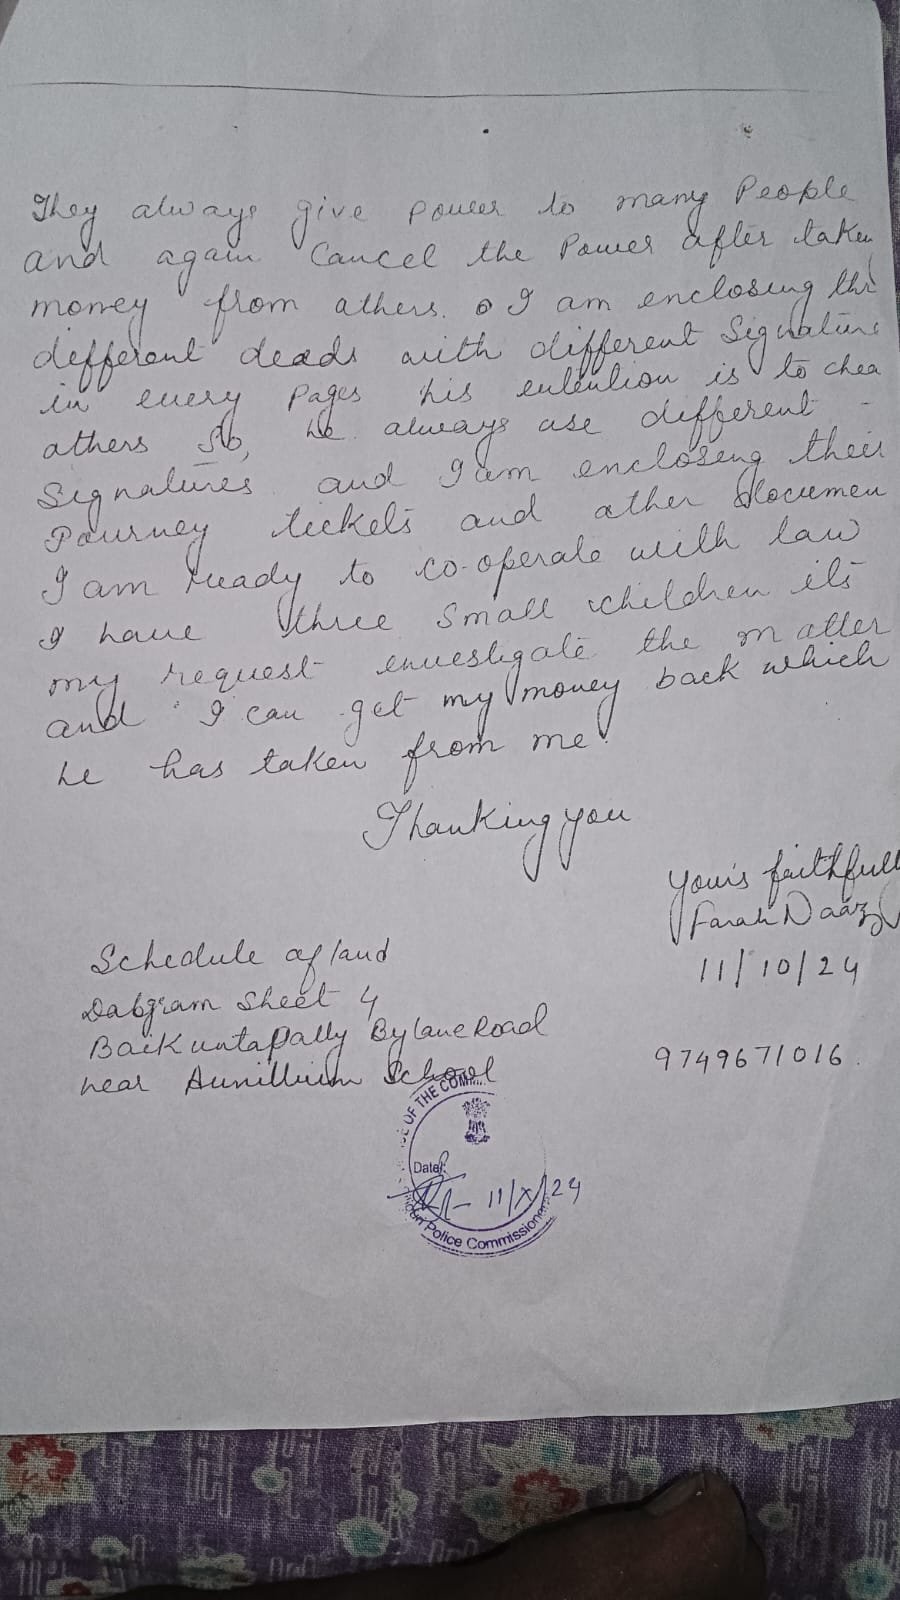 They always give power to many People
and again Cancel the Power after taken
money from athers. I am enclosing thr
defferent deads with different Signature
in every Pages his entention is to chea
athers So, he always use different -
Signatures and I am encloseng their
Journey tickets and ather documen
I am ready to co-operate with law
I have three small children its
my request envestigate the matter
and I can get my money back which
he has taken from me.
Thanking you
yours faithfull
Farah Naaz
11/10/24
Schedule of land
Dabgram Sheet 4
Baikuntapally Bylane Road
near School
9749671016.
OF THE COM
Date:
11/X/24
Police Commissioner